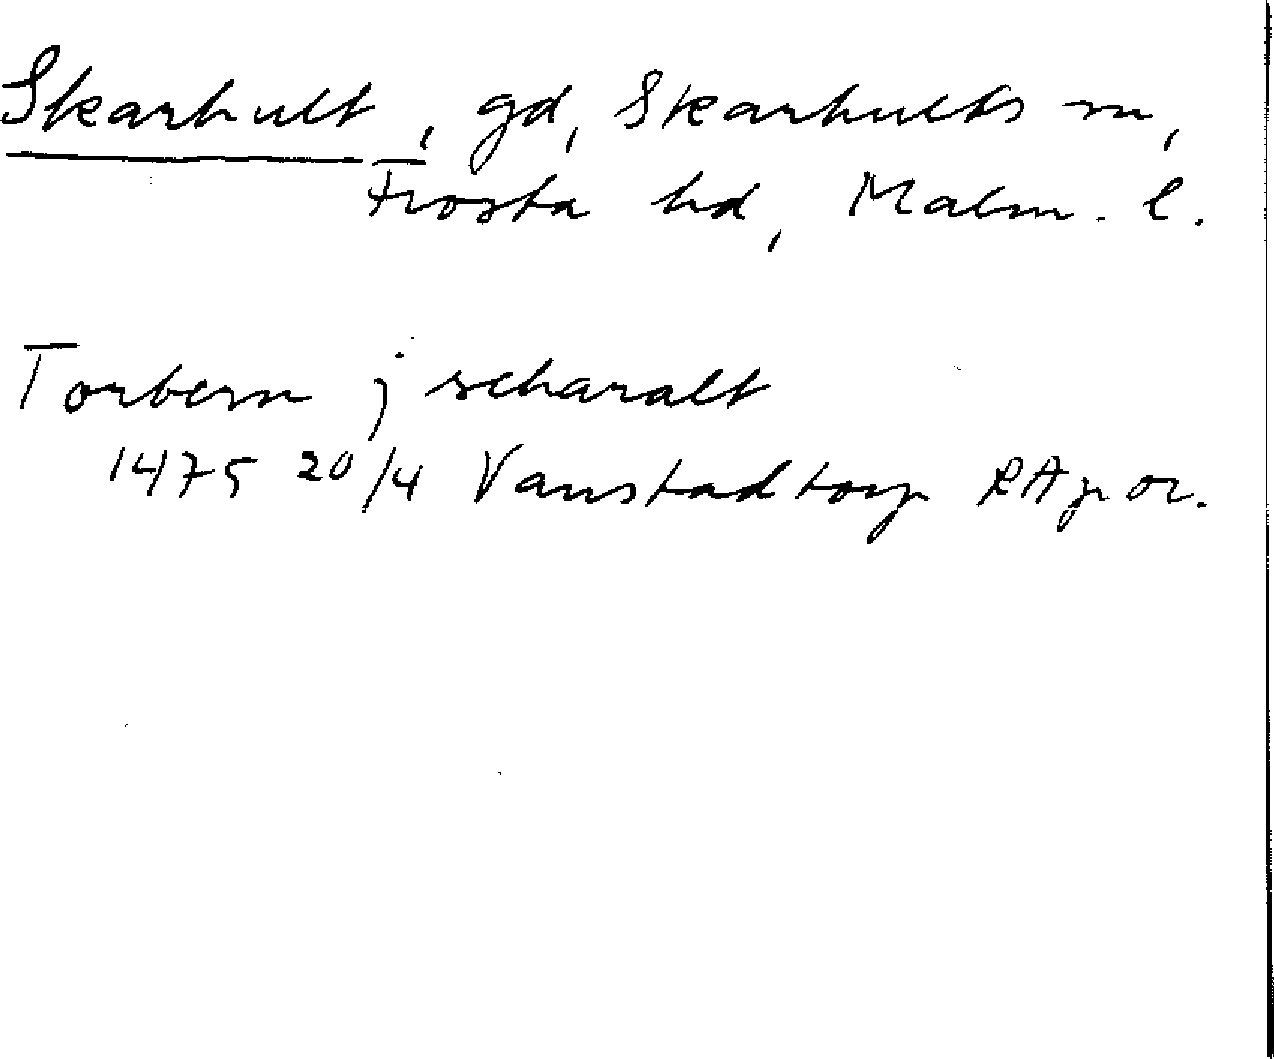 Skarhult, gd, Skarhults sn,
Frosta hd, Malm. l.
Torbern j scharalt
1475 20/4 Vanstadtorp RA p or.